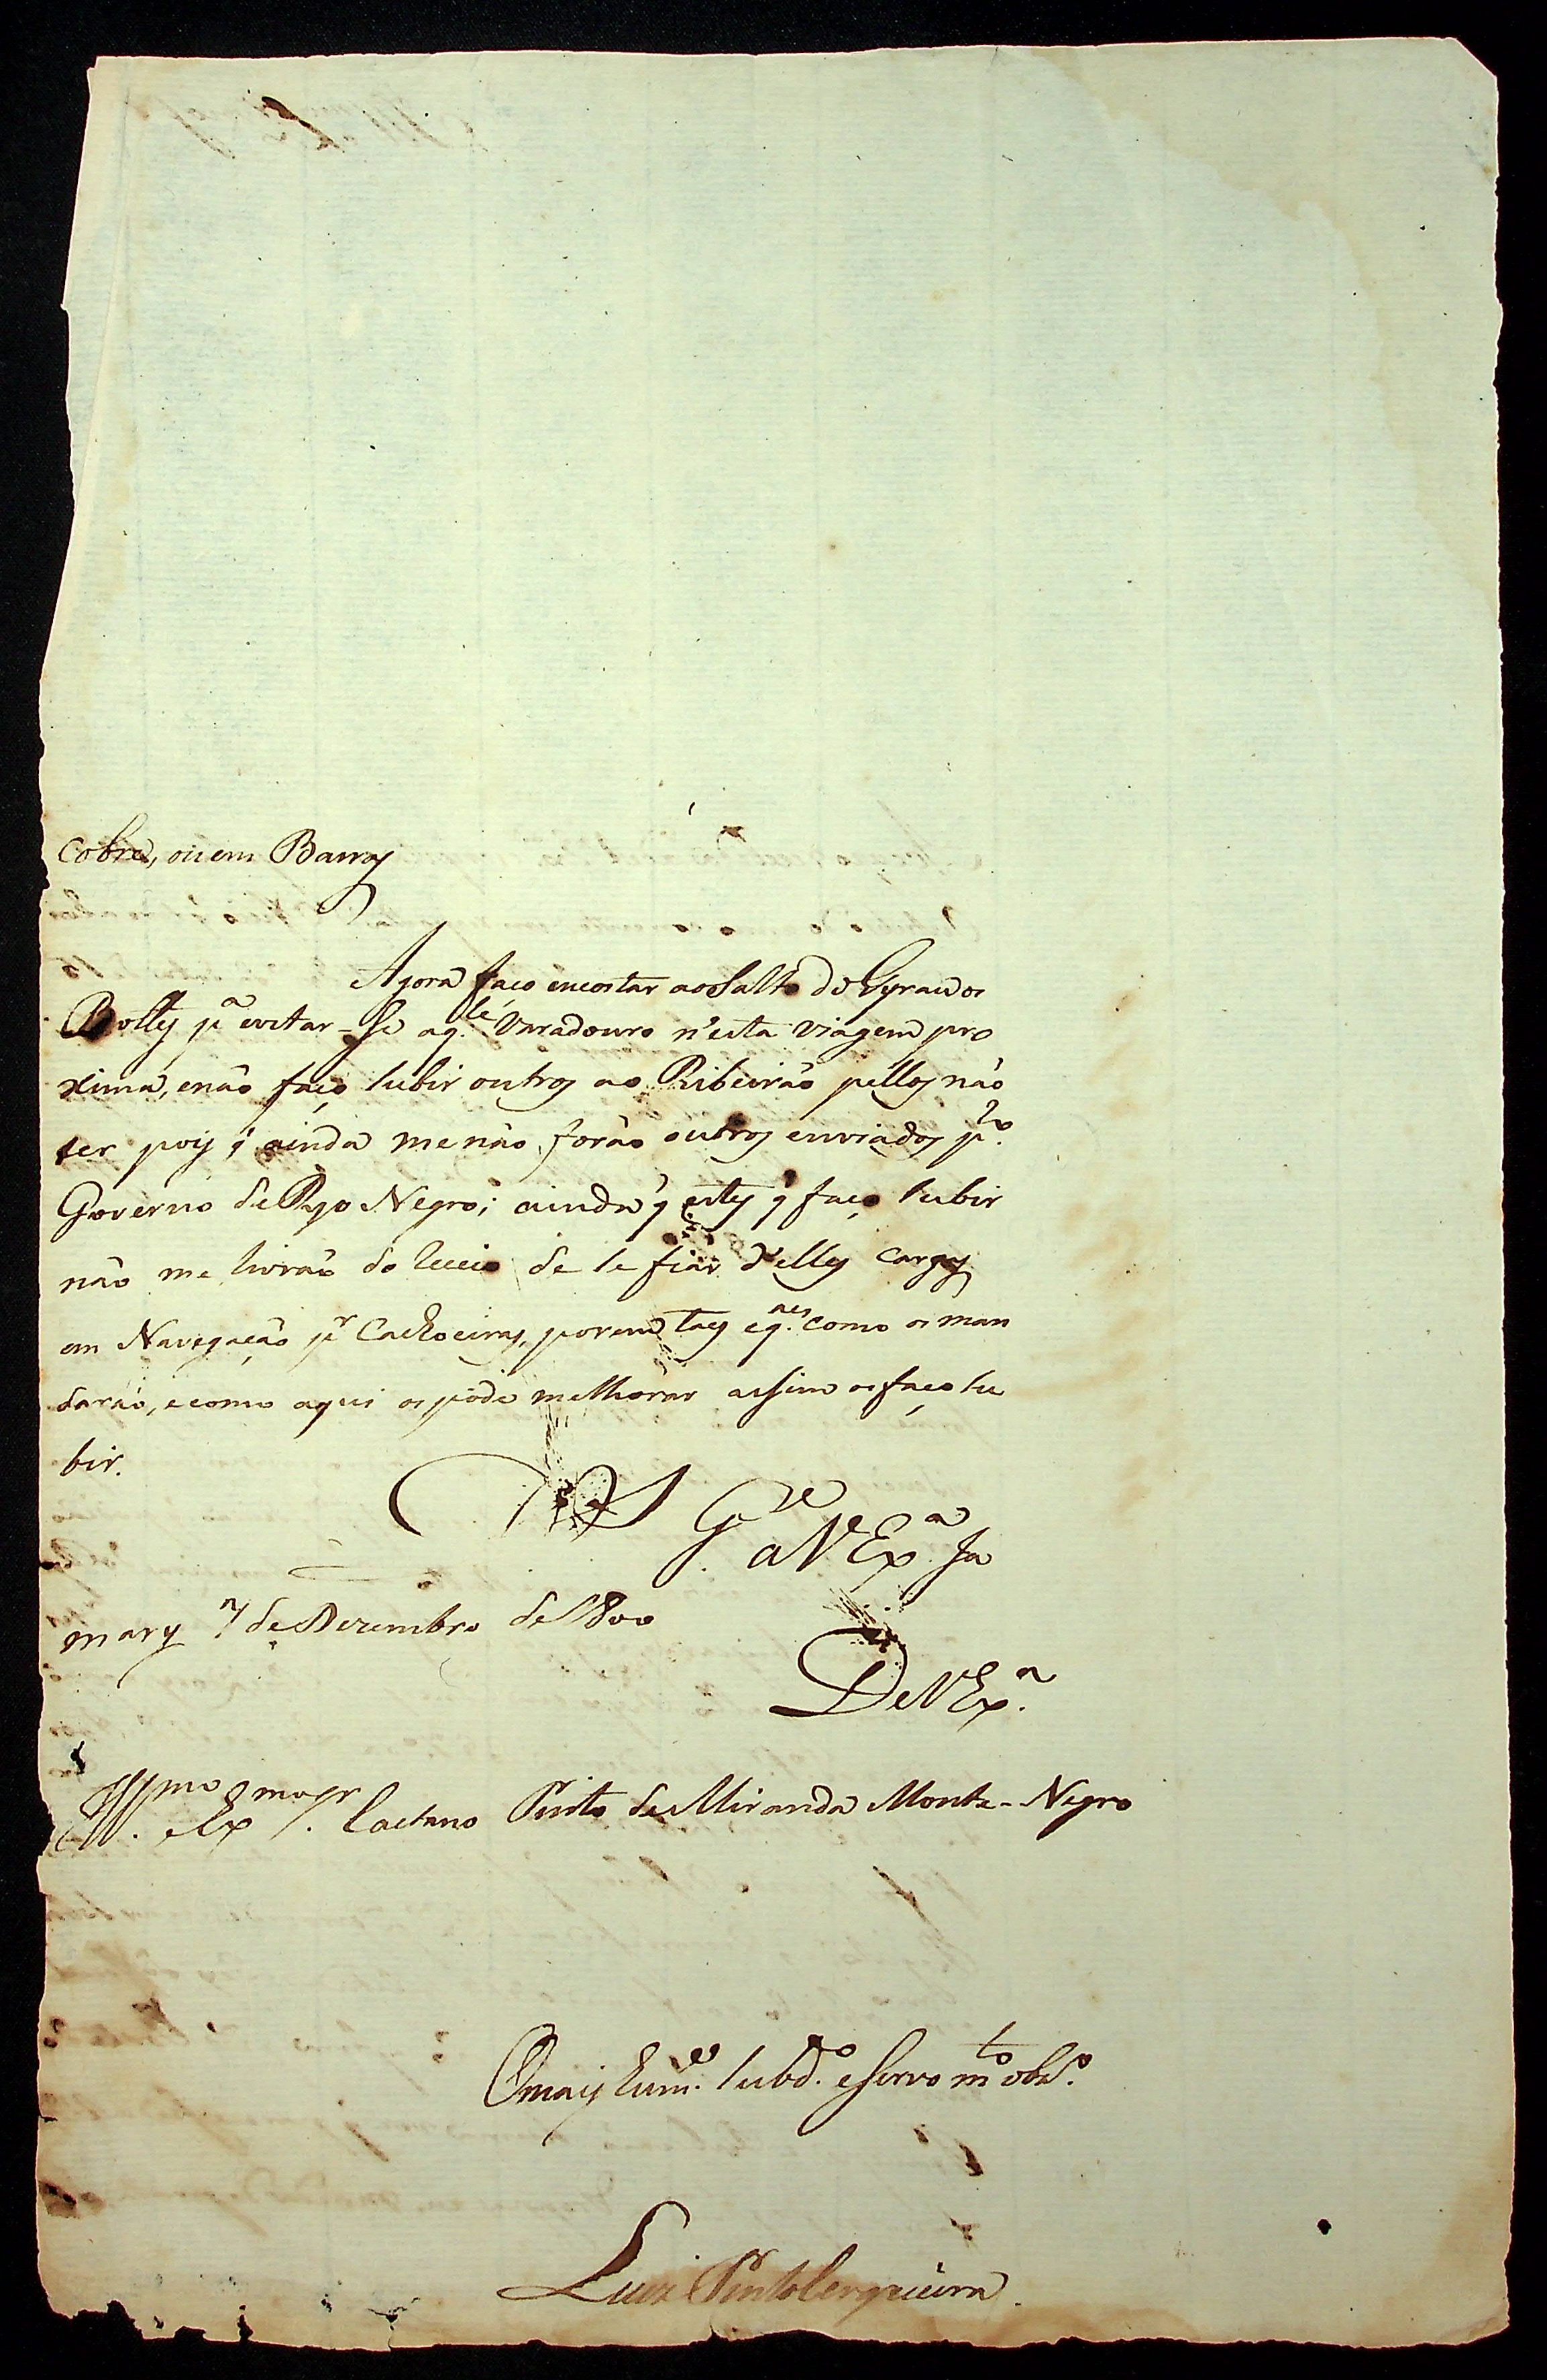 Cobre, ou em Barras
Agora faço encostar ao Salto do Gyrau os
Bottes pª evitar-se aqle Varadouro n'esta viagem pro
xima, e não faço subir outros ao Ribeirão pellos não
ter pois q' ainda me não forão outros enviados pº
Governo de Ryo Negro; ainda q' estes q' faço subir
não me livrão do receio de se fiar d'elles cargas
em Navegação pr Cachoeiras, porem taes e qaes como os man
darão, e como aqui os pôde melhorar assim os faço su
bir.
Ds Gde
a V Exª Ja
mary 7 de Dezembro de 1800
De V Exª
Illmo e Exmo Sr Caetano Pinto de Miranda Monte-Negro
O mais hume subdo e servo mto obrº
Luiz Pinto Cerqueira